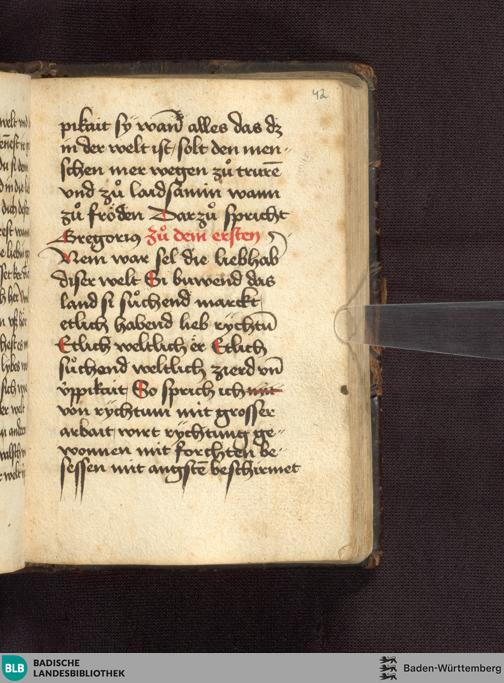 42
pikait sÿ wañ alles das dz
in der welt ist / solt den men-
schen mer wegen zů trurē
vnd zů laidsamin wann
zů fröden Darzů spricht
Gregoriꝰ zů dem ersten
Nem war sel die liebhab
diser welt Si buwend das
land si sůchend marckt
etlich habend lieb rÿchtũ
Etlich weltlich er Etlich
sůchend weltlich zierd vñ
vppikait So sprich ich mit
von rÿchtum mit grosser
arbait wirt rÿchtung ge-
wonnen mit forchten be-
sessen mit angstē beschirmet
BLB
BADISCHE
LANDESBIBLIOTHEK
Baden-Württemberg